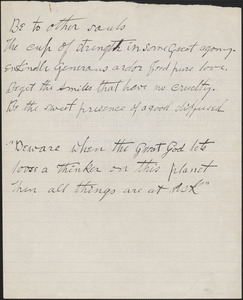 Be to other souls
The cup of strength in some Great agony.
Enkindle Generous ardor feed pure love.
Beget the Smiles that have no cruelty.
Be the sweet presence of a good diffused
"Beware when the Great God lets
loose a thinker on this planet
Then all things are at risk"